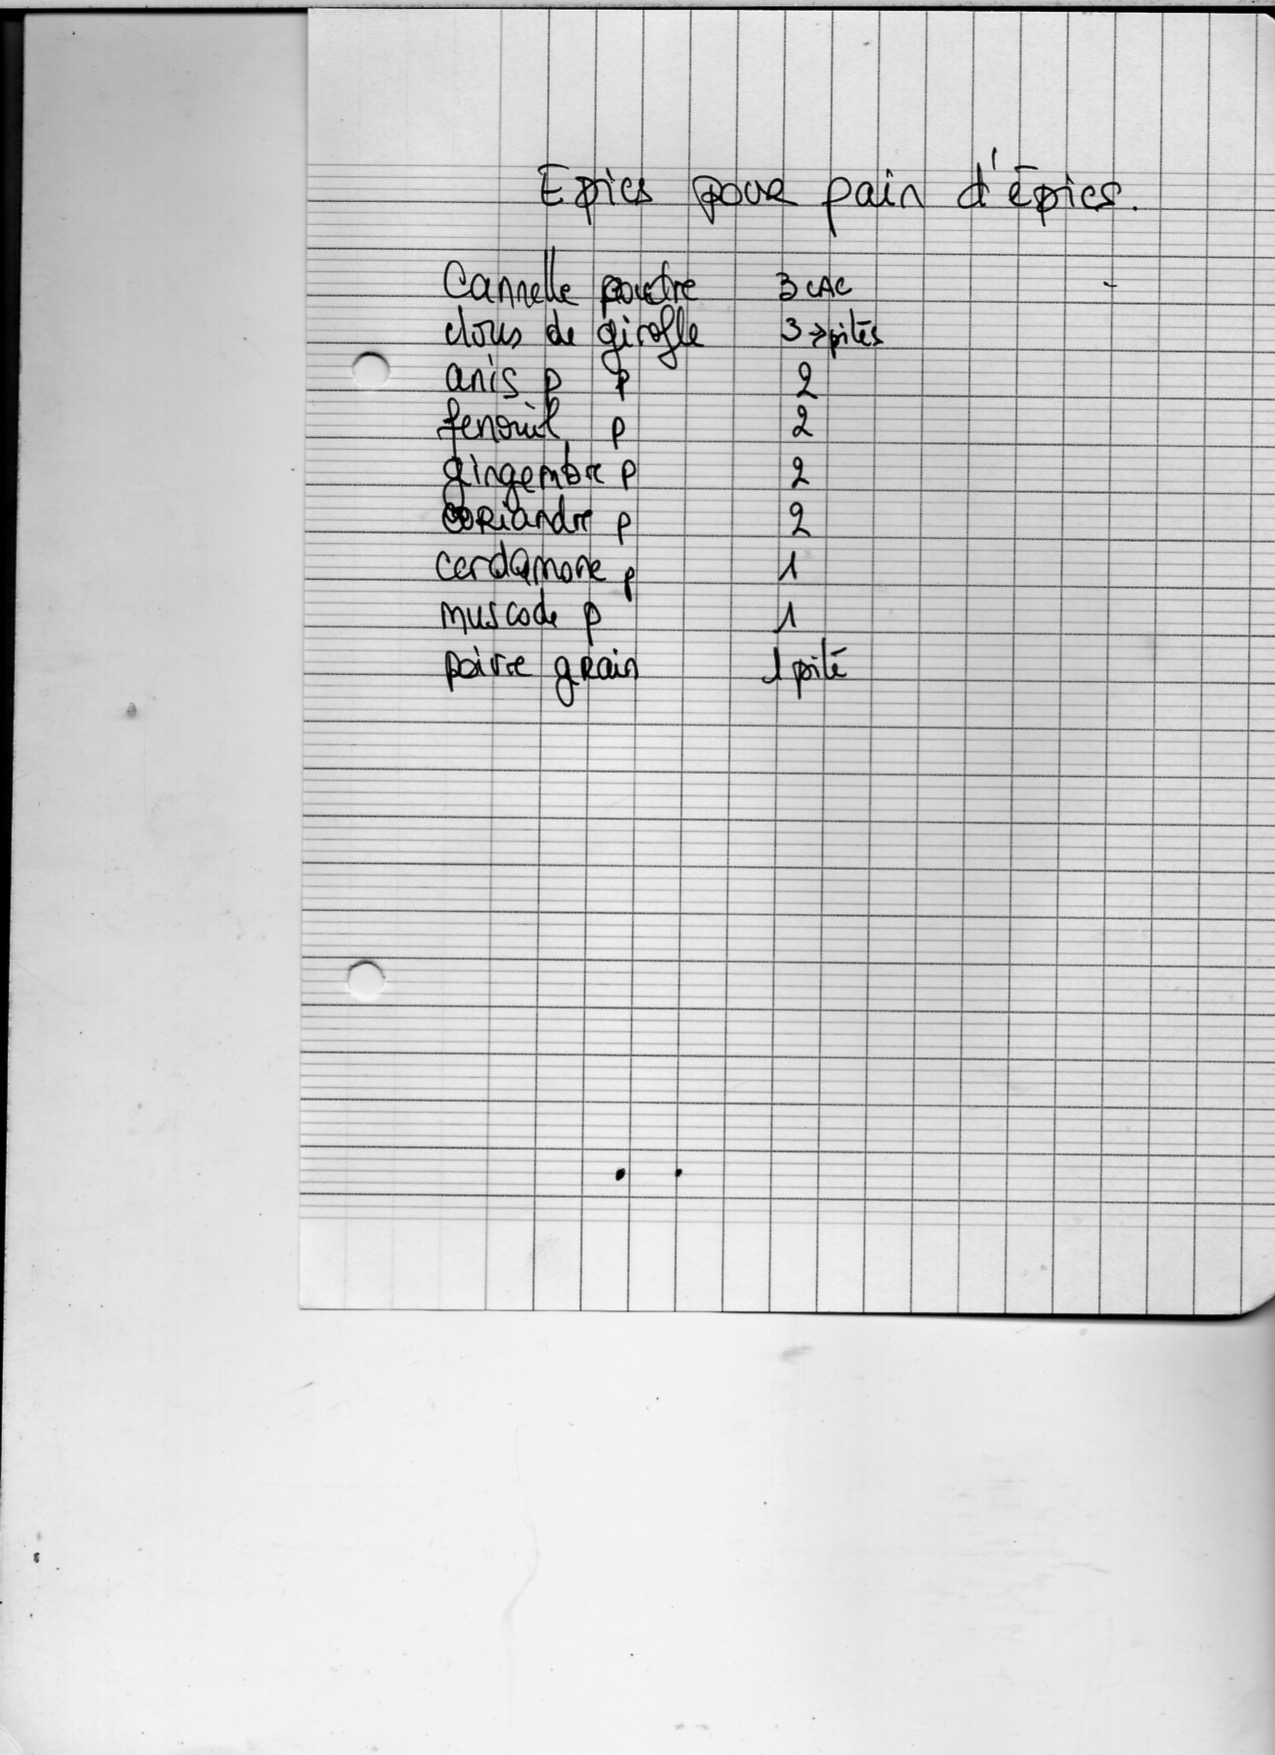 Epices pour pain d'épices.
Cannelle poudre 3 CAC
clous de girofle 3 → pilés
anis p p 2
fenouil p 2
gingembre p 2
coriandre p 2
cardamone p 1
muscade p 1
poivre grain 1 pilé